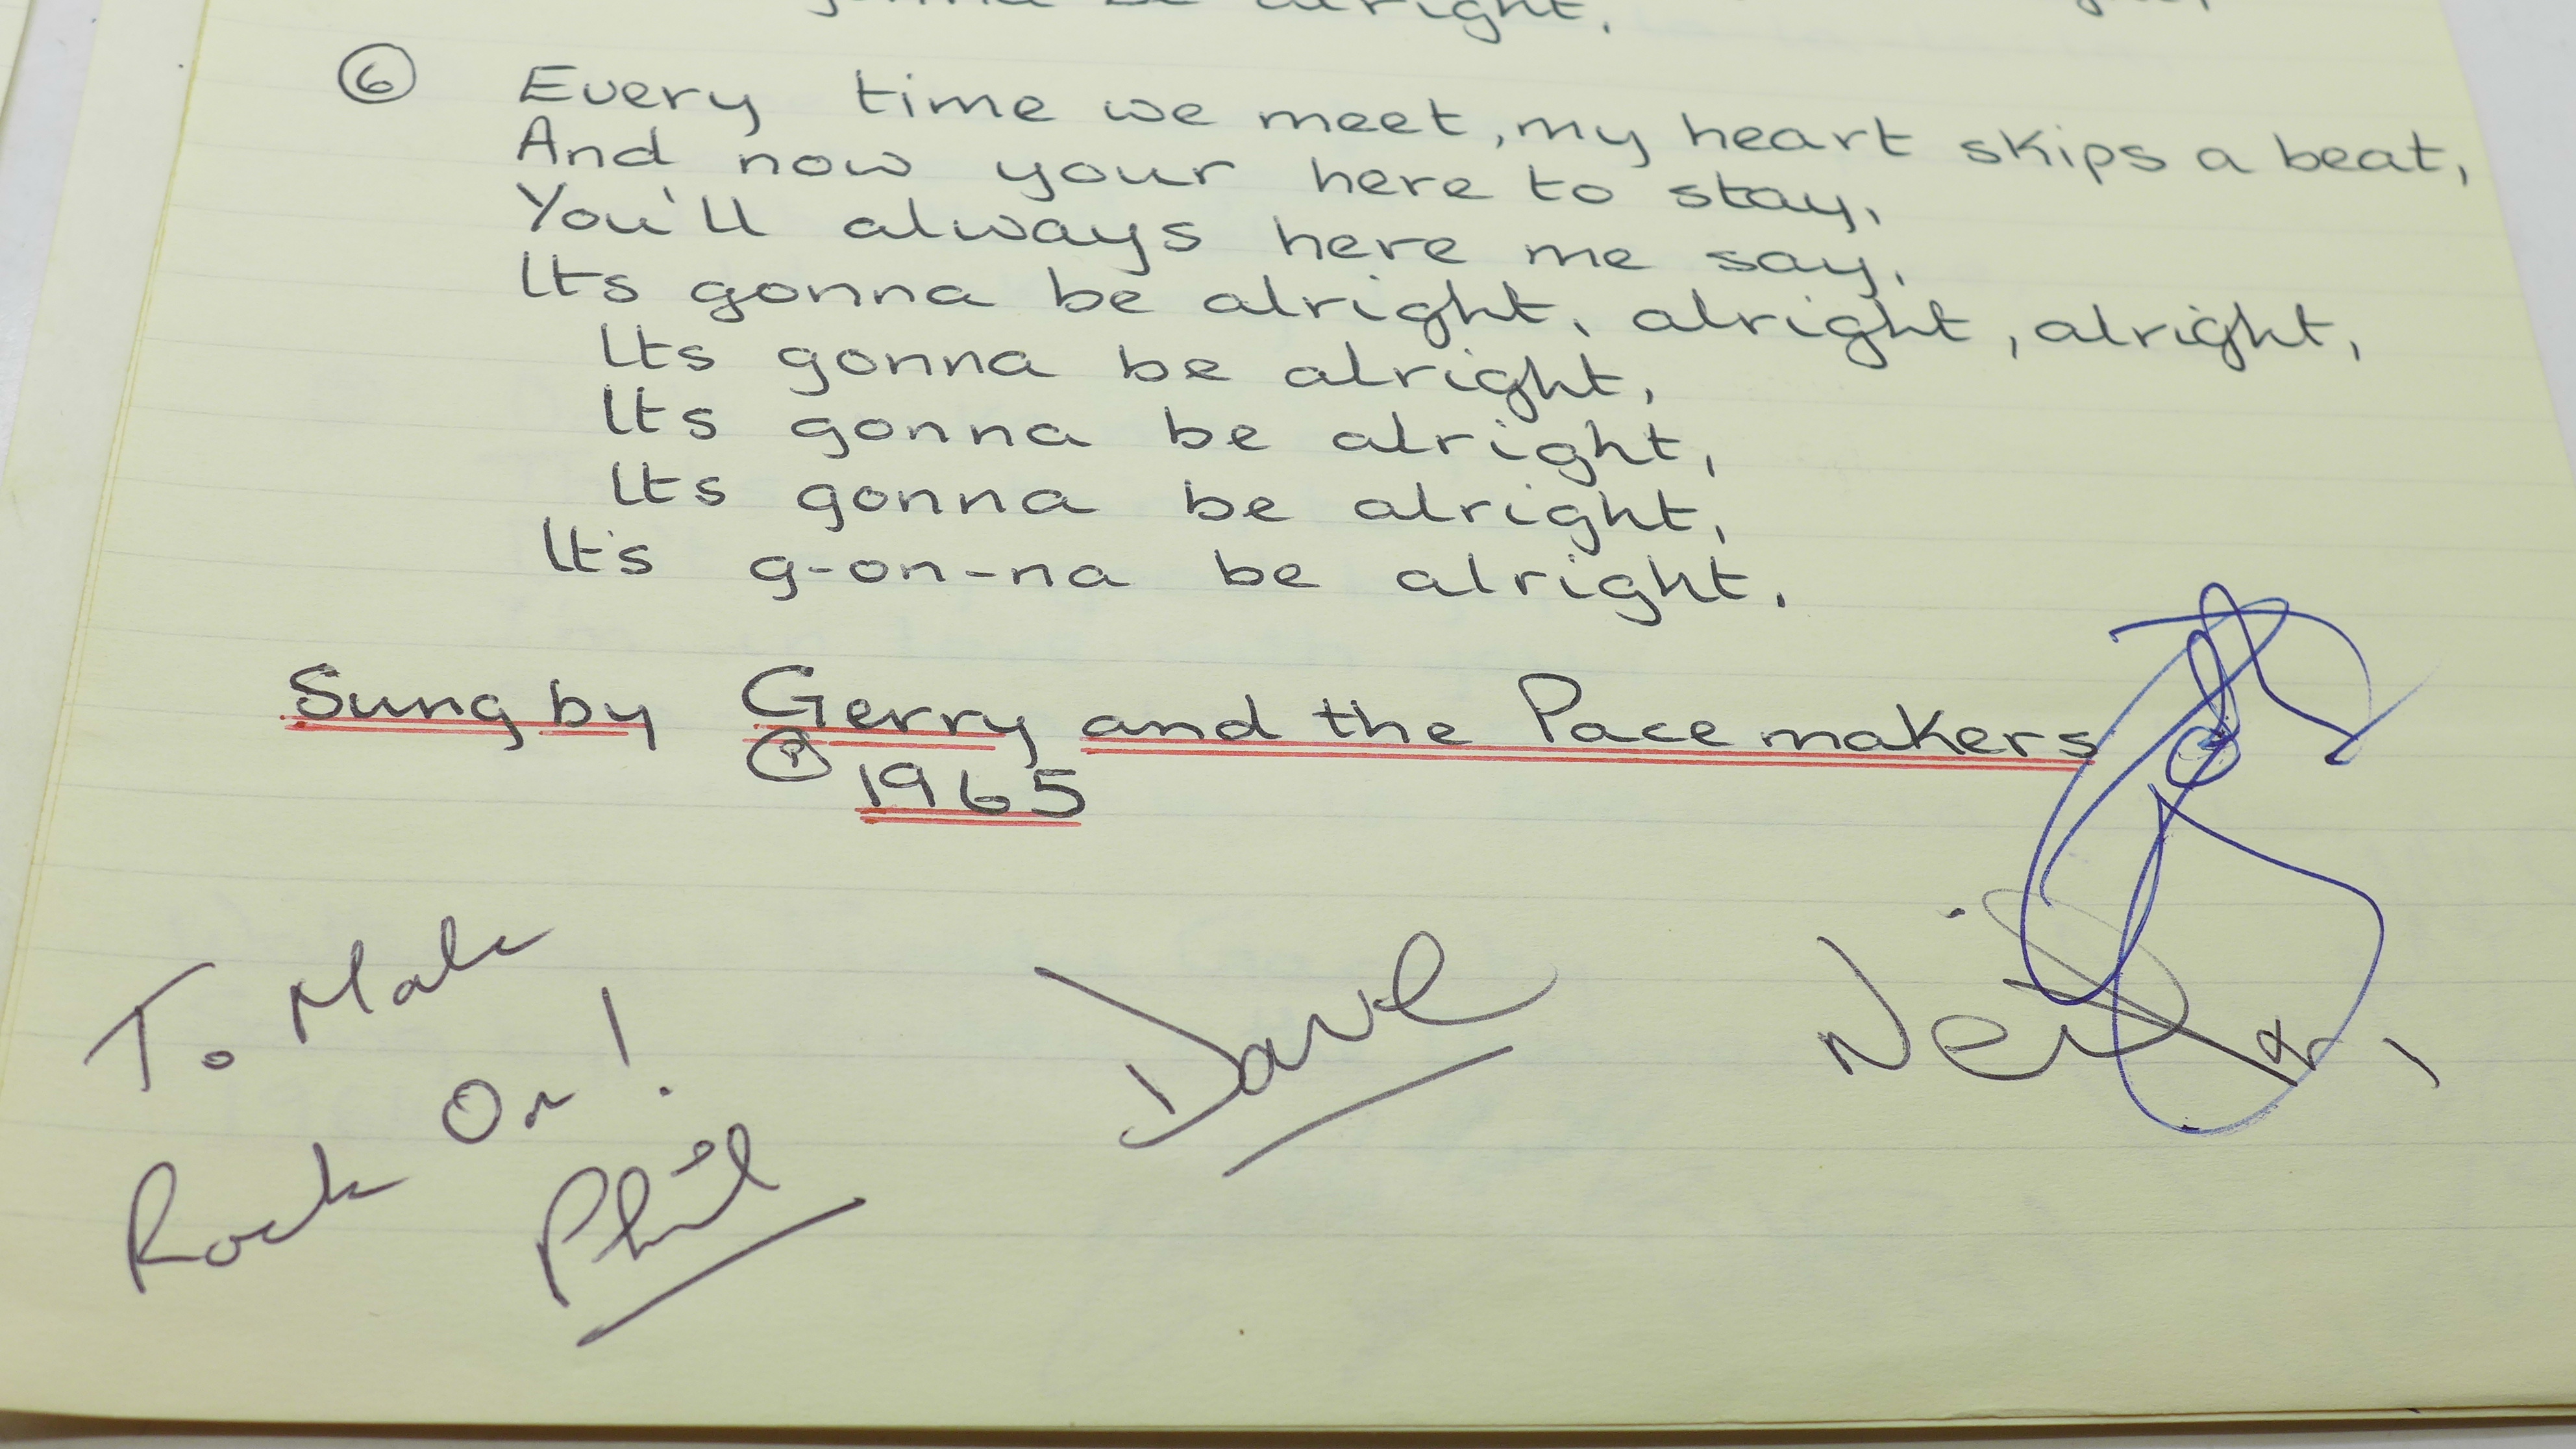 gonna be alright.
6 Every time we meet, my heart skips a beat,
And now your here to stay,
You'll always here me say,
Its gonna be alright, alright, alright,
Its gonna be alright,
Its gonna be alright,
Its gonna be alright,
It's g-on-na be alright.
Sung by Gerry and the Pacemakers
℗ 1965
To
Rock On!
Phil
Dave
Neil